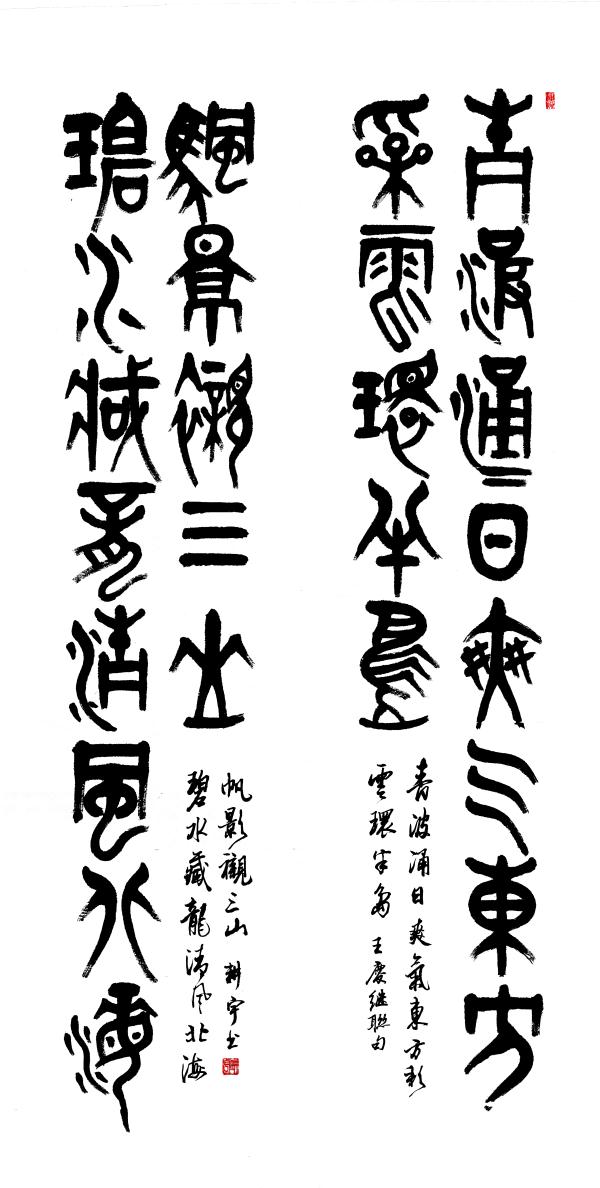 青波涌日爽气東方
采雲環半島
青波涌日爽氣東方彩
雲環半島 王慶继聯句
碧水藏龍清風北海
颿景觀三山
碧水藏龍清風北海
帆影觀三山 耕宇书